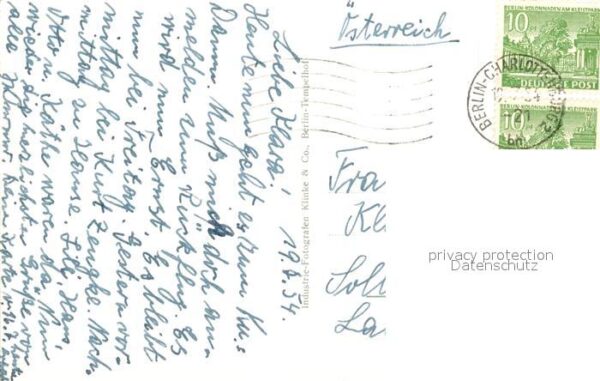 Österreich
BERLIN-KOLONNADEN AM KLEISTPARK
10
DEUTSCHE POST
BERLIN-CHARLOTTENBURG 2
BERLIN-KOLONNADEN AM KLEISTPARK
10
POST
19.8.54.
Liebe Klara!
Heute nun geht es zum Ku.
Damm. Muß mich doch an-
melden zum Rückflug. Es
wird nun Ernst. Es bleibt
nun bei Freitag. Gestern vor-
mittag bei Kurt Zengke. Nach-
mittag zu Hause. Lili, Hans,
Otto u. Käthe waren da. Nun
wieder herzlichste Grüße von
alle
Industrie-Fotografen Klinke & Co., Berlin-Tempelhof
Fra
Kl
Sol
La
privacy protection
Datenschutz